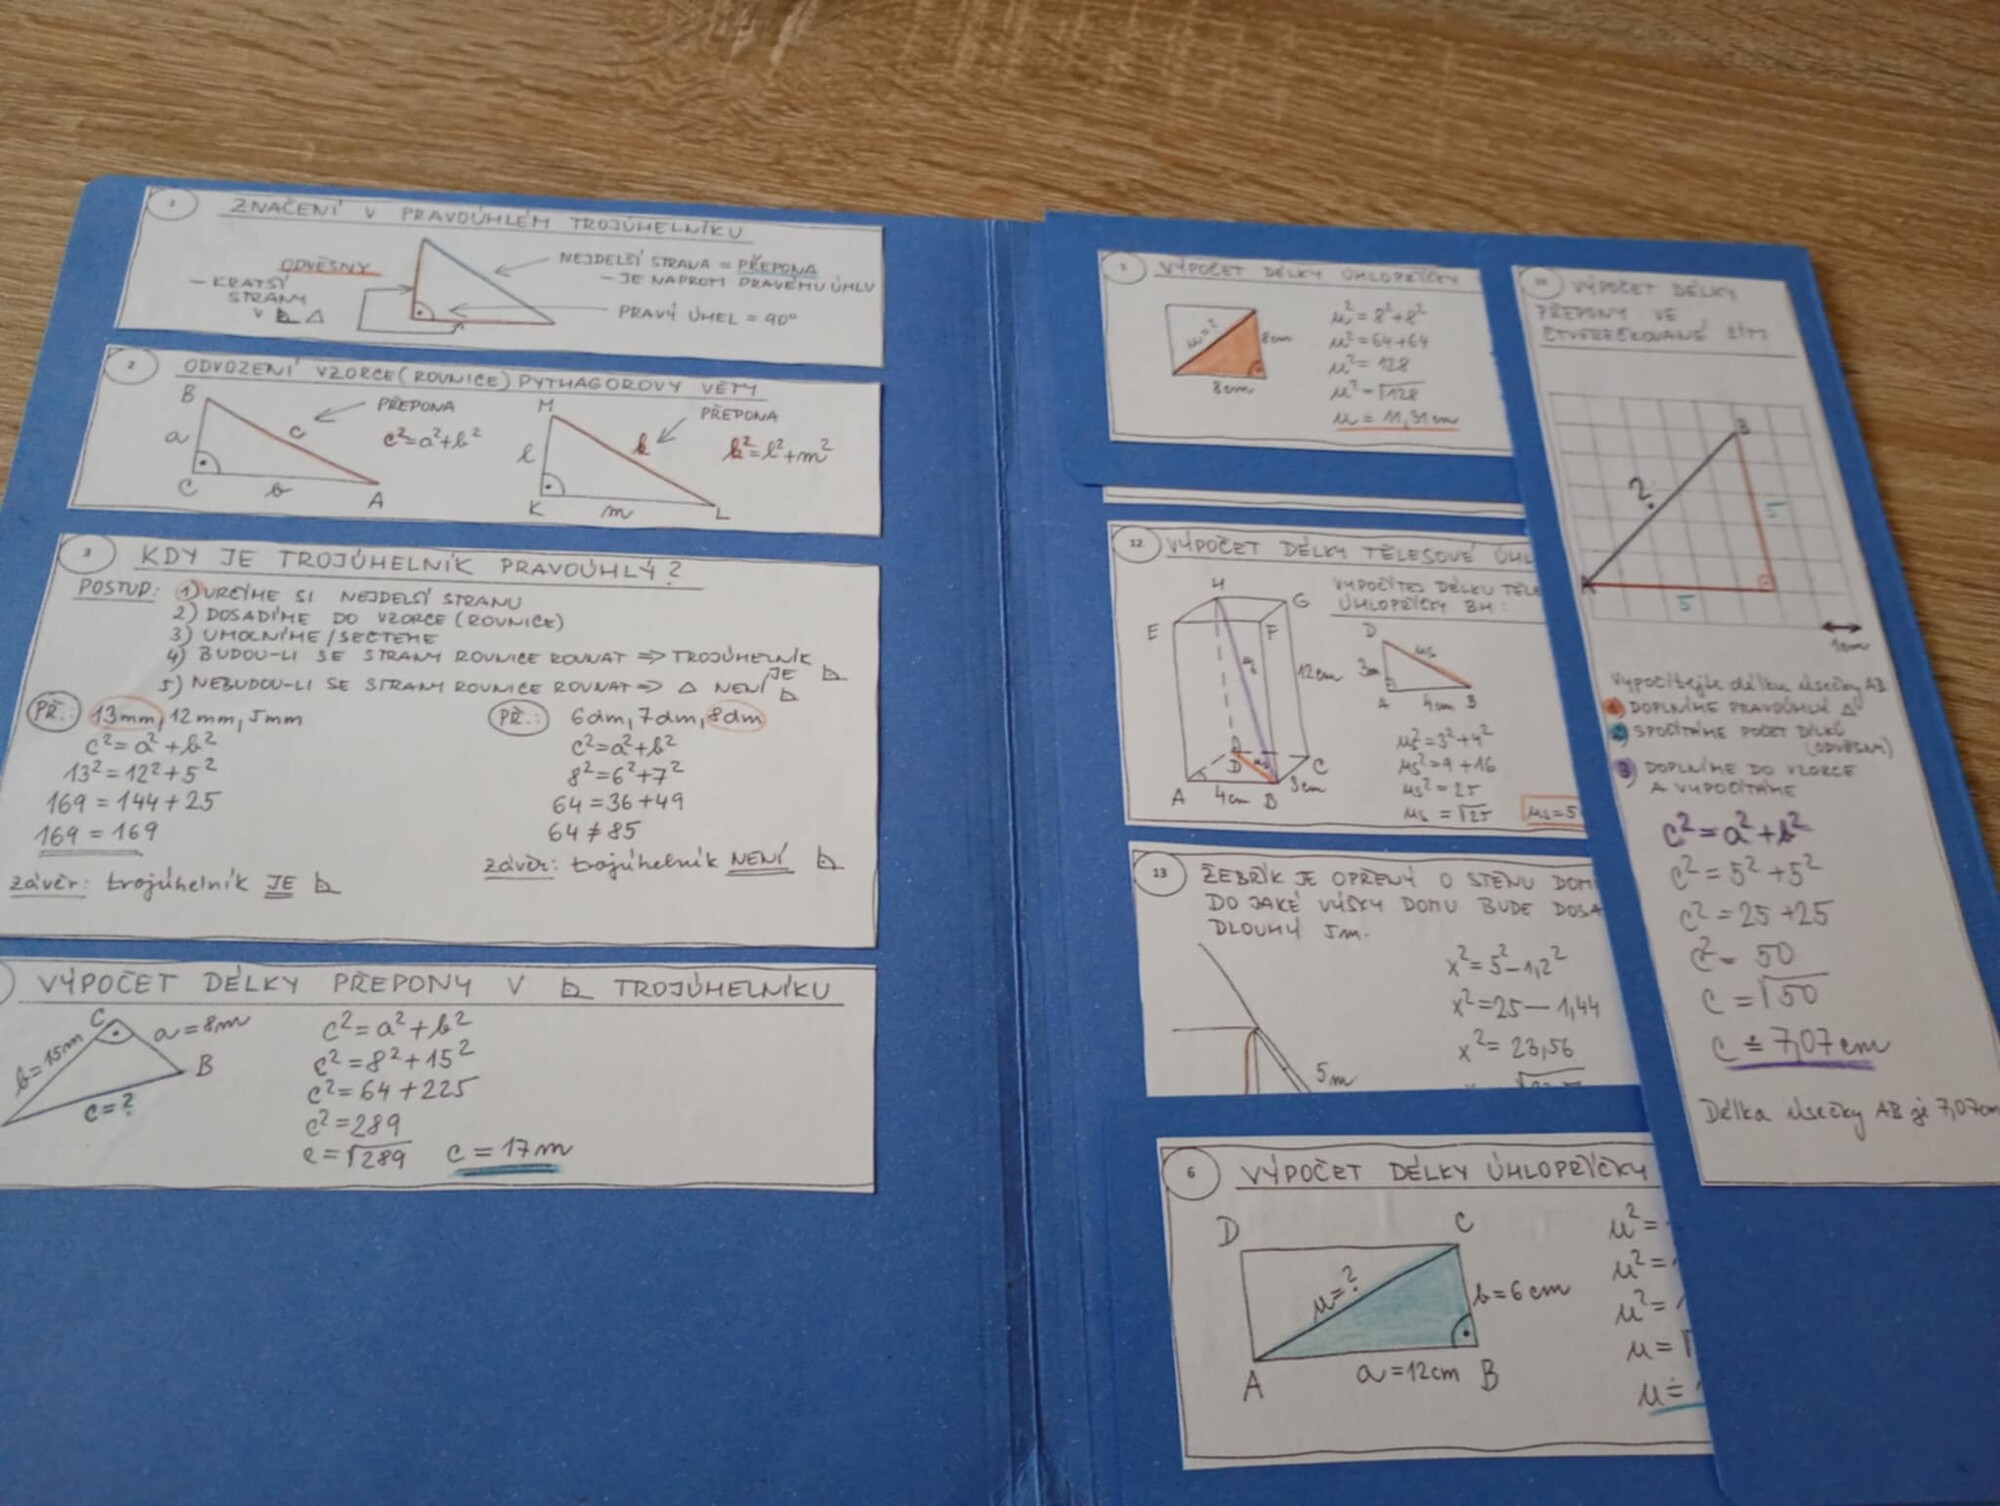 1
ZNAČENÍ V PRAVOÚHLÉM TROJÚHELNÍKU
ODVĚSNY
- KRATŠÍ
STRANY
V △
NEJDELŠÍ STRANA = PŘEPONA
- JE NAPROTI PRAVÉMU ÚHLU
PRAVÝ ÚHEL = 90°
2
ODVOZENÍ VZORCE (ROVNICE) PYTHAGOROVY VĚTY
B
a
C
b
A
c
PŘEPONA
c²=a²+b²
M
l
K
m
L
k
PŘEPONA
k²=l²+m²
3
KDY JE TROJÚHELNÍK PRAVOÚHLÝ?
POSTUP: 1) URČÍME SI NEJDELŠÍ STRANU
2) DOSADÍME DO VZORCE (ROVNICE)
3) UMOCNÍME / SEČTEME
4) BUDOU-LI SE STRANY ROVNICE ROVNAT => TROJÚHELNÍK
JE
5) NEBUDOU-LI SE STRANY ROVNICE ROVNAT => △ NENÍ
PŘ.: 13mm, 12mm, 5mm
c²=a²+b²
13²=12²+5²
169=144+25
169=169
závěr: trojúhelník JE
PŘ.: 6dm, 7dm, 8dm
c²=a²+b²
8²=6²+7²
64=36+49
64≠85
závěr: trojúhelník NENÍ
VÝPOČET DÉLKY PŘEPONY V TROJÚHELNÍKU
C
a=8m
b=15m
B
c=?
c²=a²+b²
c²=8²+15²
c²=64+225
c²=289
c=√289 c=17m
5
VÝPOČET DÉLKY ÚHLOPŘÍČKY
u=?
8cm
8cm
u²=8²+8²
u²=64+64
u²=128
u²=√128
u=11,31cm
12
VÝPOČET DÉLKY TĚLESOVÉ ÚHL
VYPOČÍTEJ DÉLKU TĚLE
ÚHLOPŘÍČKY BH:
H
G
E
F
12cm
D
C
A
4cm
B
3cm
D
us
3cm
A
4cm
B
us²=3²+4²
us²=9+16
us²=25
us=√25
us=5
13
ŽEBŘÍK JE OPŘENÝ O STĚNU DOM
DO JAKÉ VÝŠKY DOMU BUDE DOSA
DLOUHÝ 5m.
x²=5²-1,2²
x²=25-1,44
x²=23,56
5m
6
VÝPOČET DÉLKY ÚHLOPŘÍČKY
D
C
u=?
b=6cm
A
a=12cm
B
u²=
u²=
u²=
u=√
u≐
10
VÝPOČET DÉLKY
PŘEPONY VE
ČTVEREČKOVANÉ SÍTI
B
?
5
A
5
1cm
Vypočítejte délku úsečky AB
1) DOPLNÍME PRAVOÚHLÝ △
2) SPOČÍTÁME POČET DÍLKŮ
(ODVĚSEN)
3) DOPLNÍME DO VZORCE
A VYPOČÍTÁME
c²=a²+b²
c²=5²+5²
c²=25+25
c²=50
c=√50
c≐7,07cm
Délka úsečky AB je 7,07cm